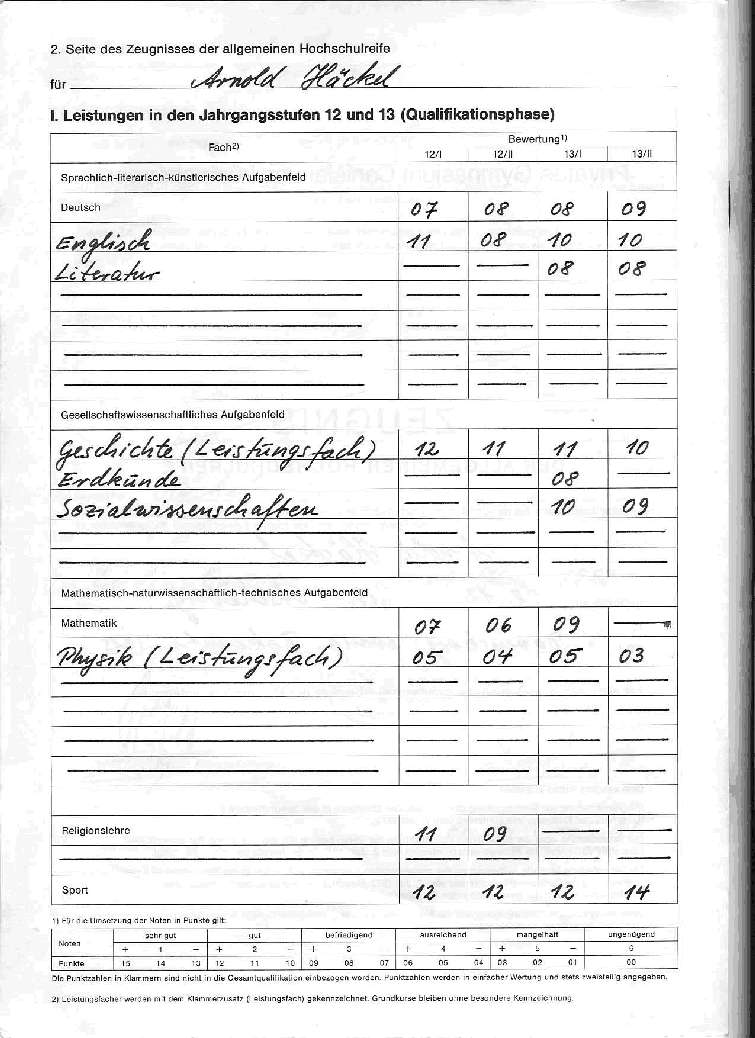 2. Seite des Zeugnisses der allgemeinen Hochschulreife
für Arnold Häckel
I. Leistungen in den Jahrgangsstufen 12 und 13 (Qualifikationsphase)
Fach2) Bewertung1)
12/I 12/II 13/I 13/II
Sprachlich-literarisch-künstlerisches Aufgabenfeld
Deutsch 07 08 08 09
Englisch 11 08 10 10
Literatur — — 08 08
Gesellschaftswissenschaftliches Aufgabenfeld
Geschichte (Leistungsfach) 12 11 11 10
Erdkunde — — 08 —
Sozialwissenschaften — — 10 09
Mathematisch-naturwissenschaftlich-technisches Aufgabenfeld
Mathematik 07 06 09 —
Physik (Leistungsfach) 05 04 05 03
Religionslehre 11 09 — —
Sport 12 12 12 14
1) Für die Umsetzung der Noten in Punkte gilt:
Noten sehr gut gut befriedigend ausreichend mangelhaft ungenügend
+ 1 – + 2 – + 3 + 4 – + 5 – 6
Punkte 15 14 13 12 11 10 09 08 07 06 05 04 03 02 01 00
Die Punktzahlen in Klammern sind nicht in die Gesamtqualifikation einbezogen worden. Punktzahlen werden in einfacher Wertung und stets zweistellig angegeben.
2) Leistungsfächer werden mit dem Klammerzusatz (Leistungsfach) gekennzeichnet. Grundkurse bleiben ohne besondere Kennzeichnung.